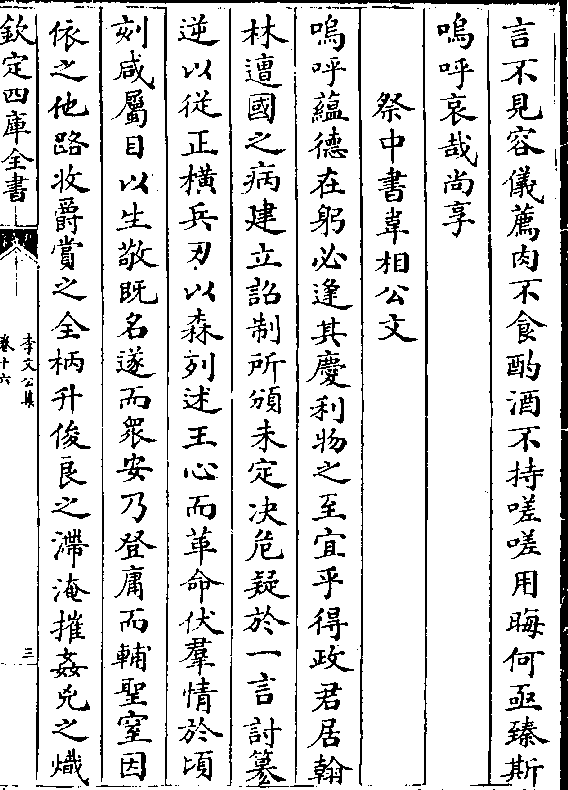 言不見容儀薦肉不食酌酒不持嗟嗟用晦何亟臻斯
嗚呼哀哉尚享
祭中書韋相公文
嗚呼蘊德在躬必逢其慶利物之至宜乎得政君居翰
林遭國之病建立詔制所頒未定决危疑於一言討簒
逆以従正橫兵刃以森列述王心而革命伏羣情於頃
刻咸屬目以生敬既名遂而衆安乃登庸而輔聖窒因
依之他路收爵賞之全柄升俊良之滯淹摧姦兇之熾
欽定四庫全書
李文公集
卷十六
三